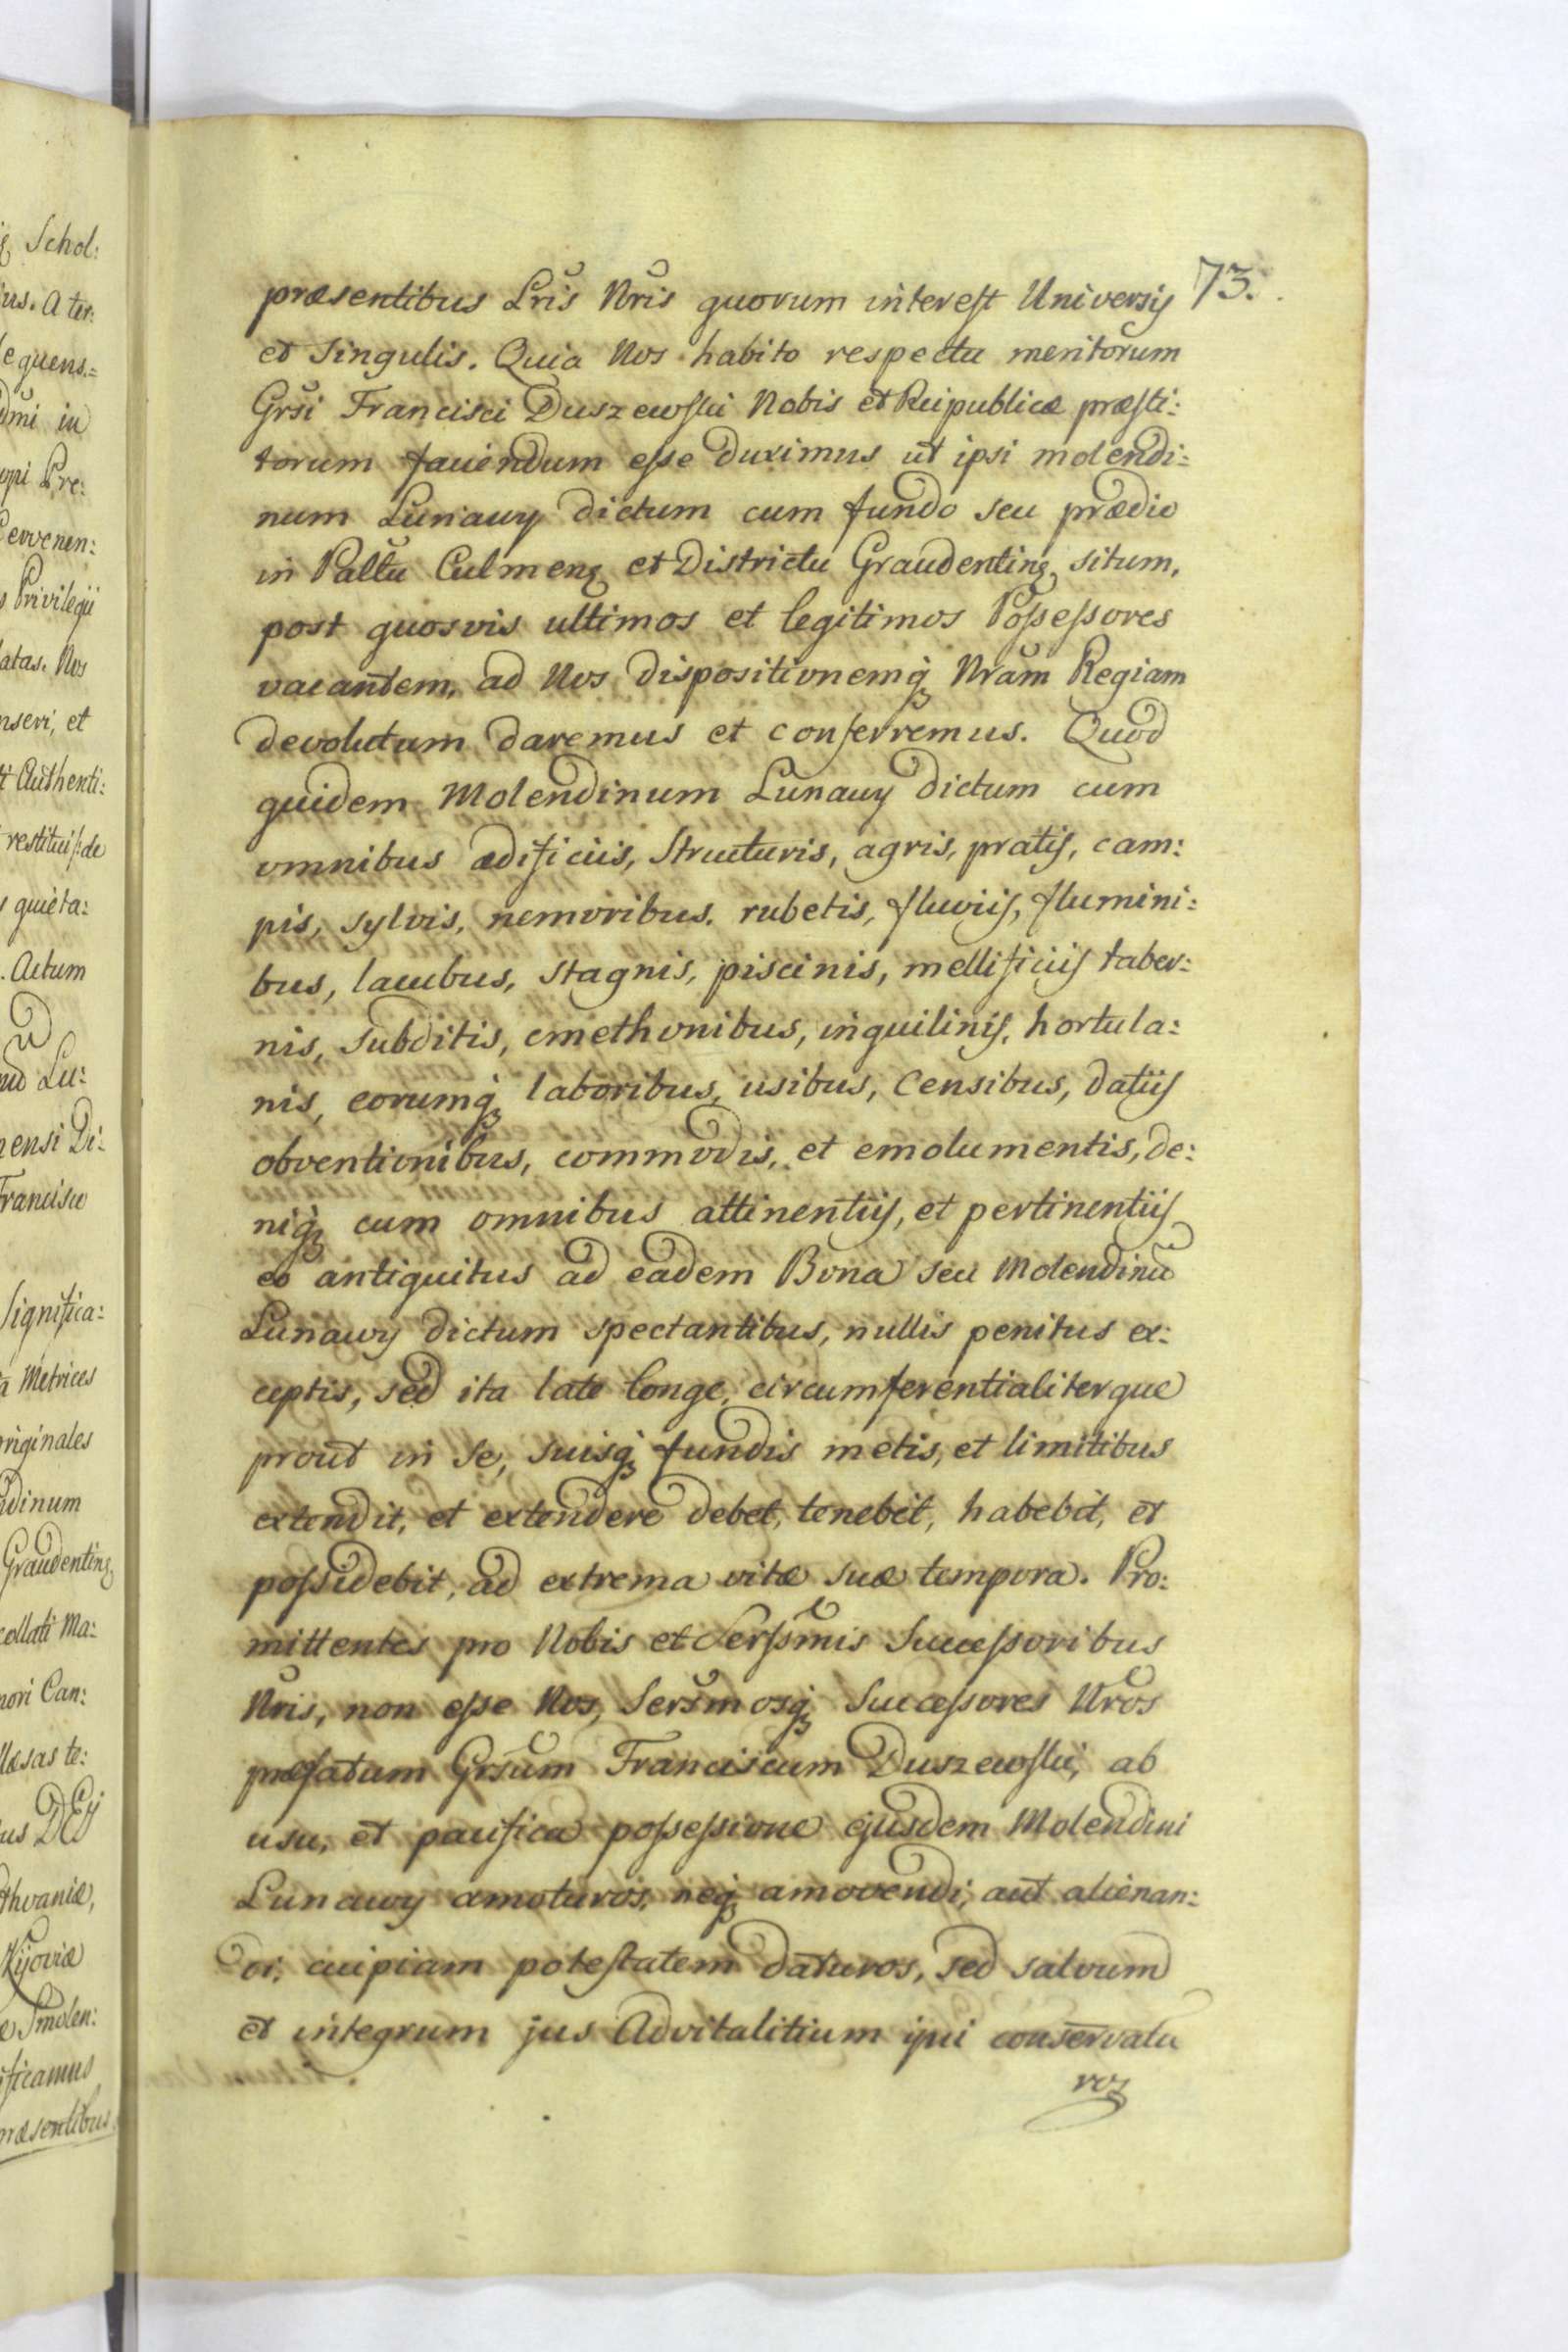 73.
præsentibus Lris Nris quorum interest Universis
et singulis. Quia Nos habito respectu meritorum
Grsi Francisci Duszewski Nobis et Reipublicæ præsti:
torum faciendum esse duximus ut ipsi molendi:
num Lunawy dictum cum fundo seu prædio
in Pallu Culmenq et Districtu Graudentinq situm,
post quosvis ultimos et legitimos Possessores
vacantem, ad Nos dispositionemq Nram Regiam
devolutum daremus et conferremus. Quod
quidem Molendinum Lunawy dictum cum
omnibus ædificiis, structuris, agris, pratis, cam:
pis, sylvis, nemoribus, rubetis, fluviis, flumini:
bus, lacubus, stagnis, piscinis, mellificiis taber:
nis, subditis, cmethonibus, inquilinis, hortula:
nis, eorumq laboribus, usibus, Censibus, datiis
obventionibus, commodis, et emolumentis, de:
niq cum omnibus attinentiis, et pertinentiis
eo antiquitus ad eadem Bona seu Molendinū
Lunawy dictum spectantibus, nullis penitus ex:
ceptis, sed ita late longe, circumferentialiterque
prout in se, suisq fundis metis, et limitibus
extendit, et extendere debet, tenebit, habebit, et
possidebit, ad extrema vitæ suæ tempora. Pro:
mittentes pro Nobis et Serssmis Successoribus
Nris, non esse Nos, Sersmosq Successores Nros
præfatum Grsum Franciscum Duszewski, ab
usu, et pacifica possessione ejusdem Molendini
Lunawy amoturos, neq amovendi, aut alienan:
di, cuipiam potestatem daturos, sed salvum
et integrum jus Advitalitium ipsi conservatu
ros
Schol:
ius. A ter:
sequens.=
in
Pre:
Privilegii
latas. Nos
nseri, et
Authenti:
quieta:
. Actum
Lu:
nensi Di:
Francisco
significa:
Metrices
originales
dinum
Graudentinq
collati Ma:
nori Can:
llæsas te:
us DEI
thvaniæ,
Kijoviæ
Smolen:
ificamus
præsentibus